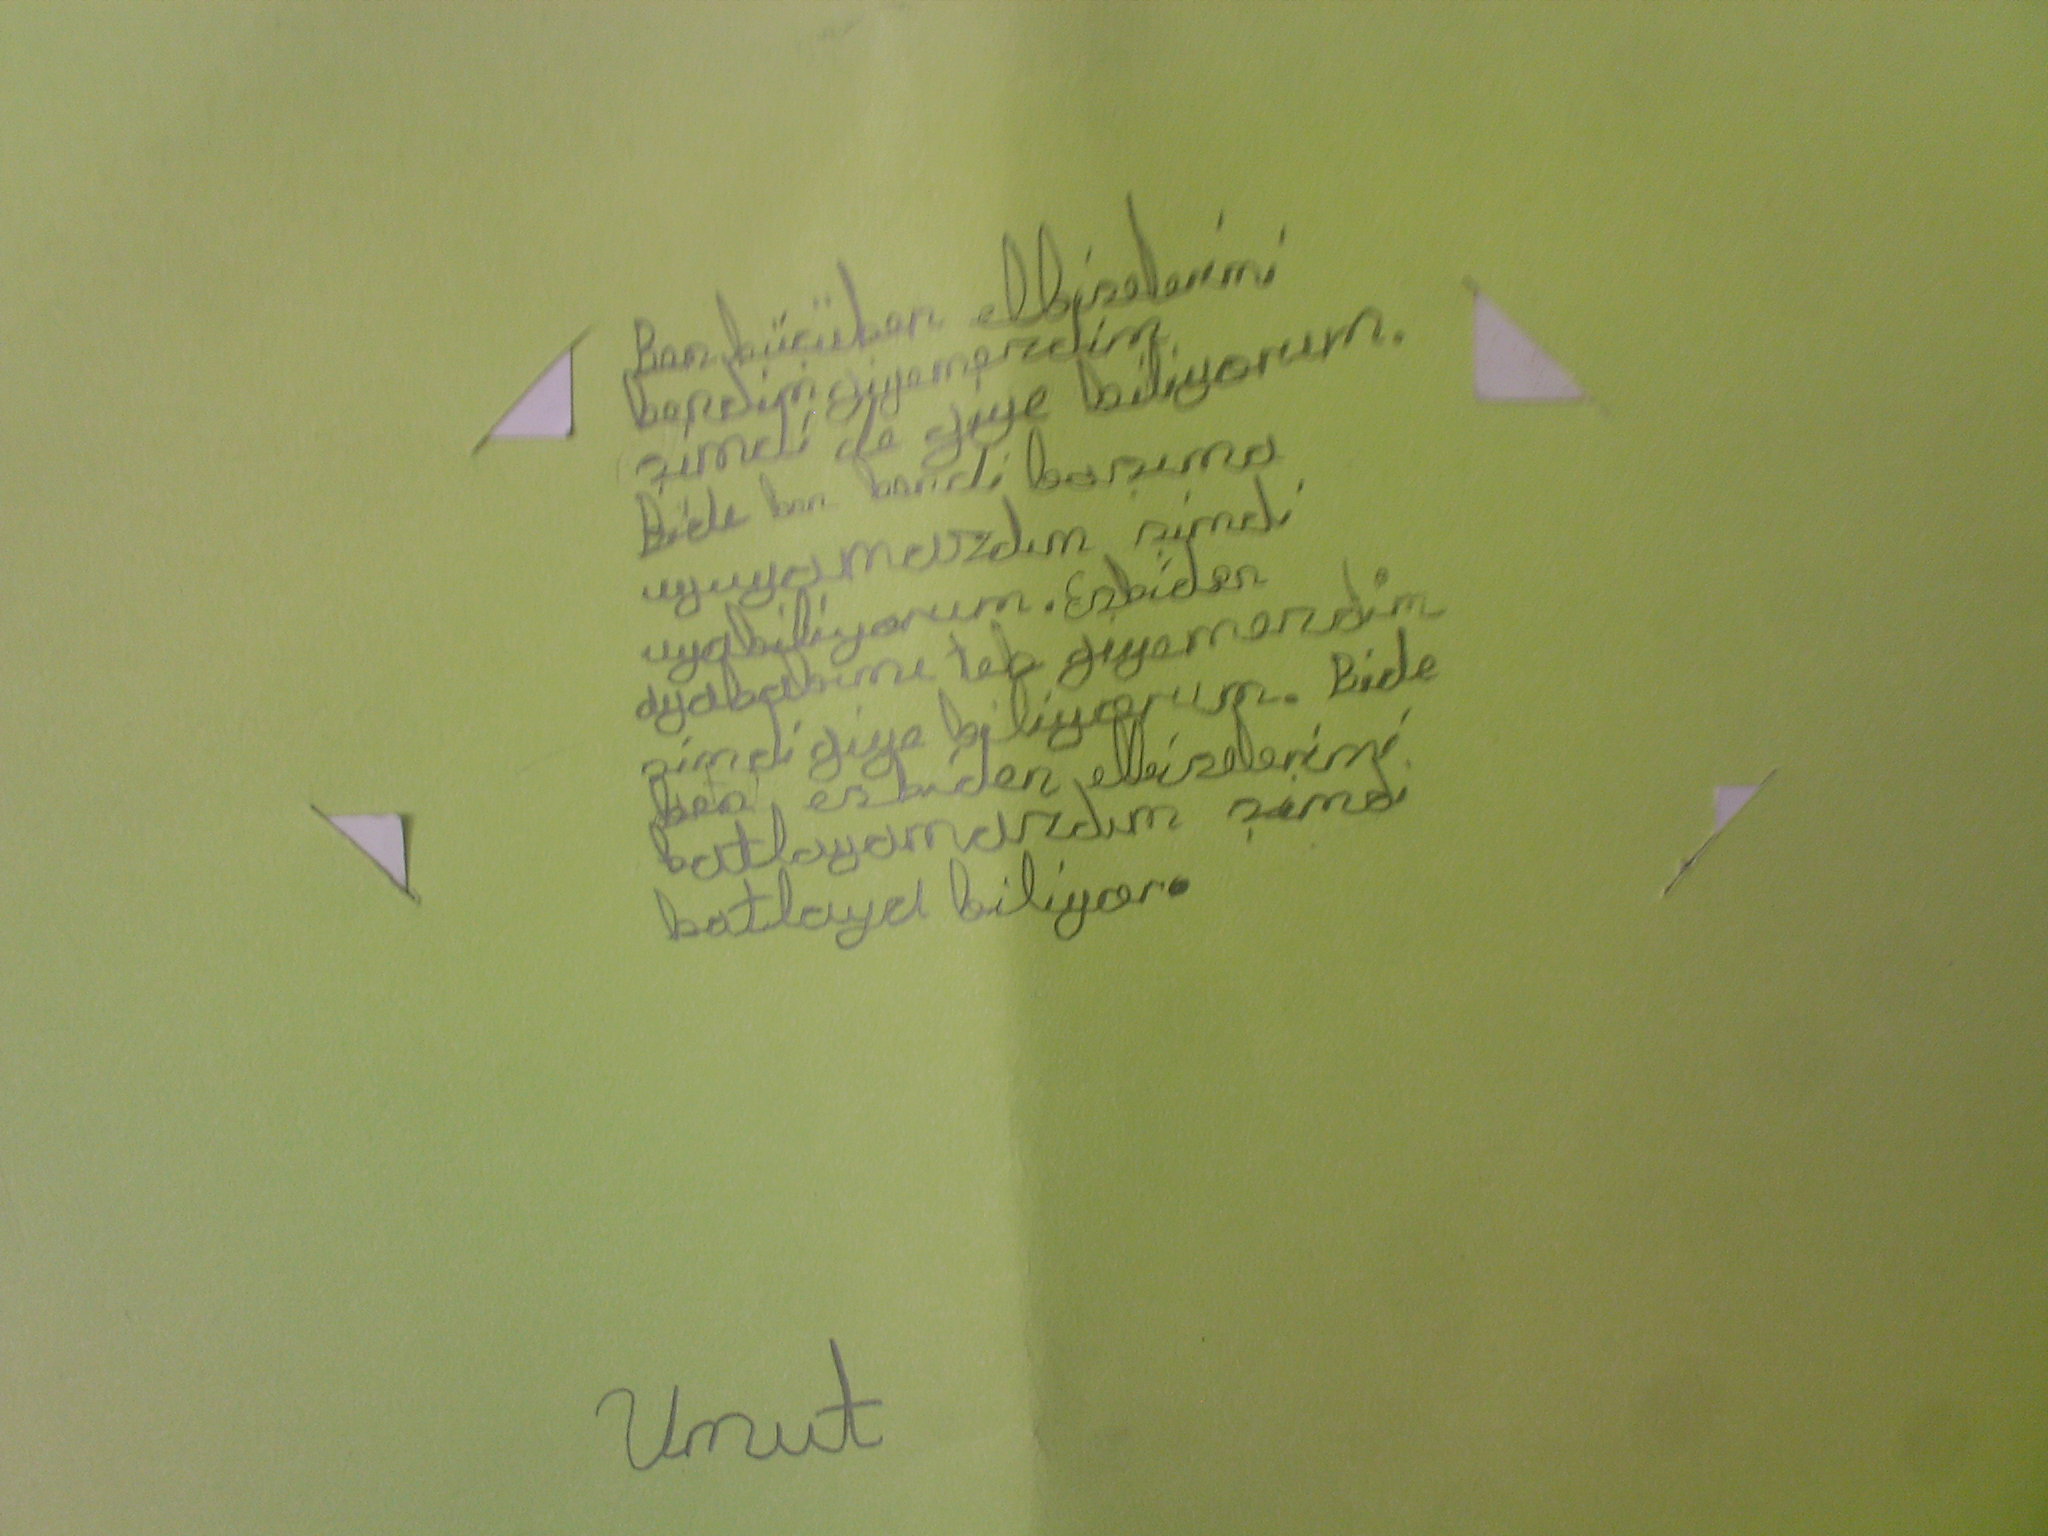 Ben küçükken elbiselerimi
kendim giyemezdim
şimdi de giye biliyorum.
Bide ben kendi başıma
uyuyamazdım şimdi
uyabiliyorum. Eskiden
ayakabımı tek giyemezdim
şimdi giye biliyorum. Bide
ben eskiden elbiselerimi
katlayamazdım şimdi
katlaya biliyor.
Umut